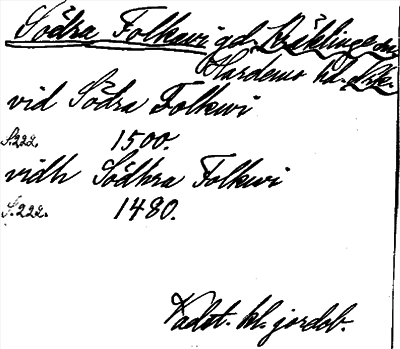 Södra Folkavi gd. Kräklinge sn.
Hardemo hd. Örk.
vid Södra Folkwi
S. 222. 1500.
vidh Södhra Folkwi
S. 222. 1480.
Vadst. kl. jordeb.